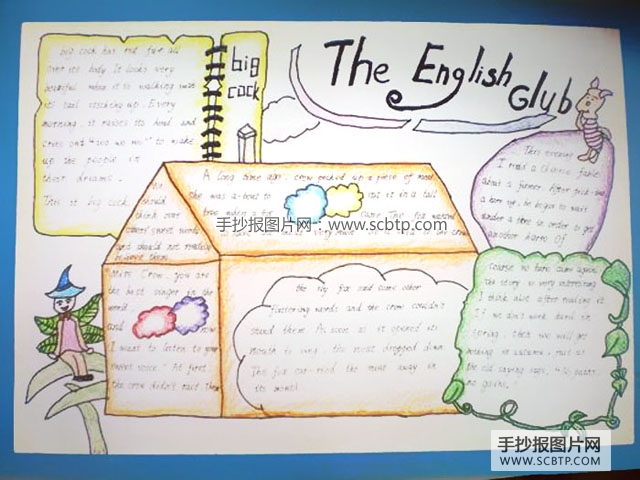 The English Glub
big
cock
big cock has red fur all
over its body. It looks very
beautiful when it is walking with
its tail sticking up. Every
morning, it raises its head and
cries out "wo wo wo" to wake
up the people in
their dreams.
This is big cock.
A long time ago, crow picked up a piece of meat
she was about to eat it in a tall
tree when a fox came. The fox wanted
to the crow
We
should
think over
others' sweet words
and should not readily
believe them.
Miss Crow, you are
the best singer in the
world
and now
I want to listen to your
sweet voice." At first,
the crow didn't trust them
the fox said some other
flattering words and the crow couldn't
stand them. As soon as it opened its
mouth to sing, the meat dropped down
The fox carried the meat away in
its mouth
This evening
I read a Chinese fable
about a farmer. After pick-ing
a hare up, he began to wait
under a tree in order to get
another hare. Of
course no hare came again
the story is very interesting
I think also after reading it
If we don't work hard in
spring, then we will get
nothing in autumn, just as
the old saying says, "No pains,
no gains."
手抄报图片网：www.scbtp.com
手抄报图片网
WWW.SCBTP.COM